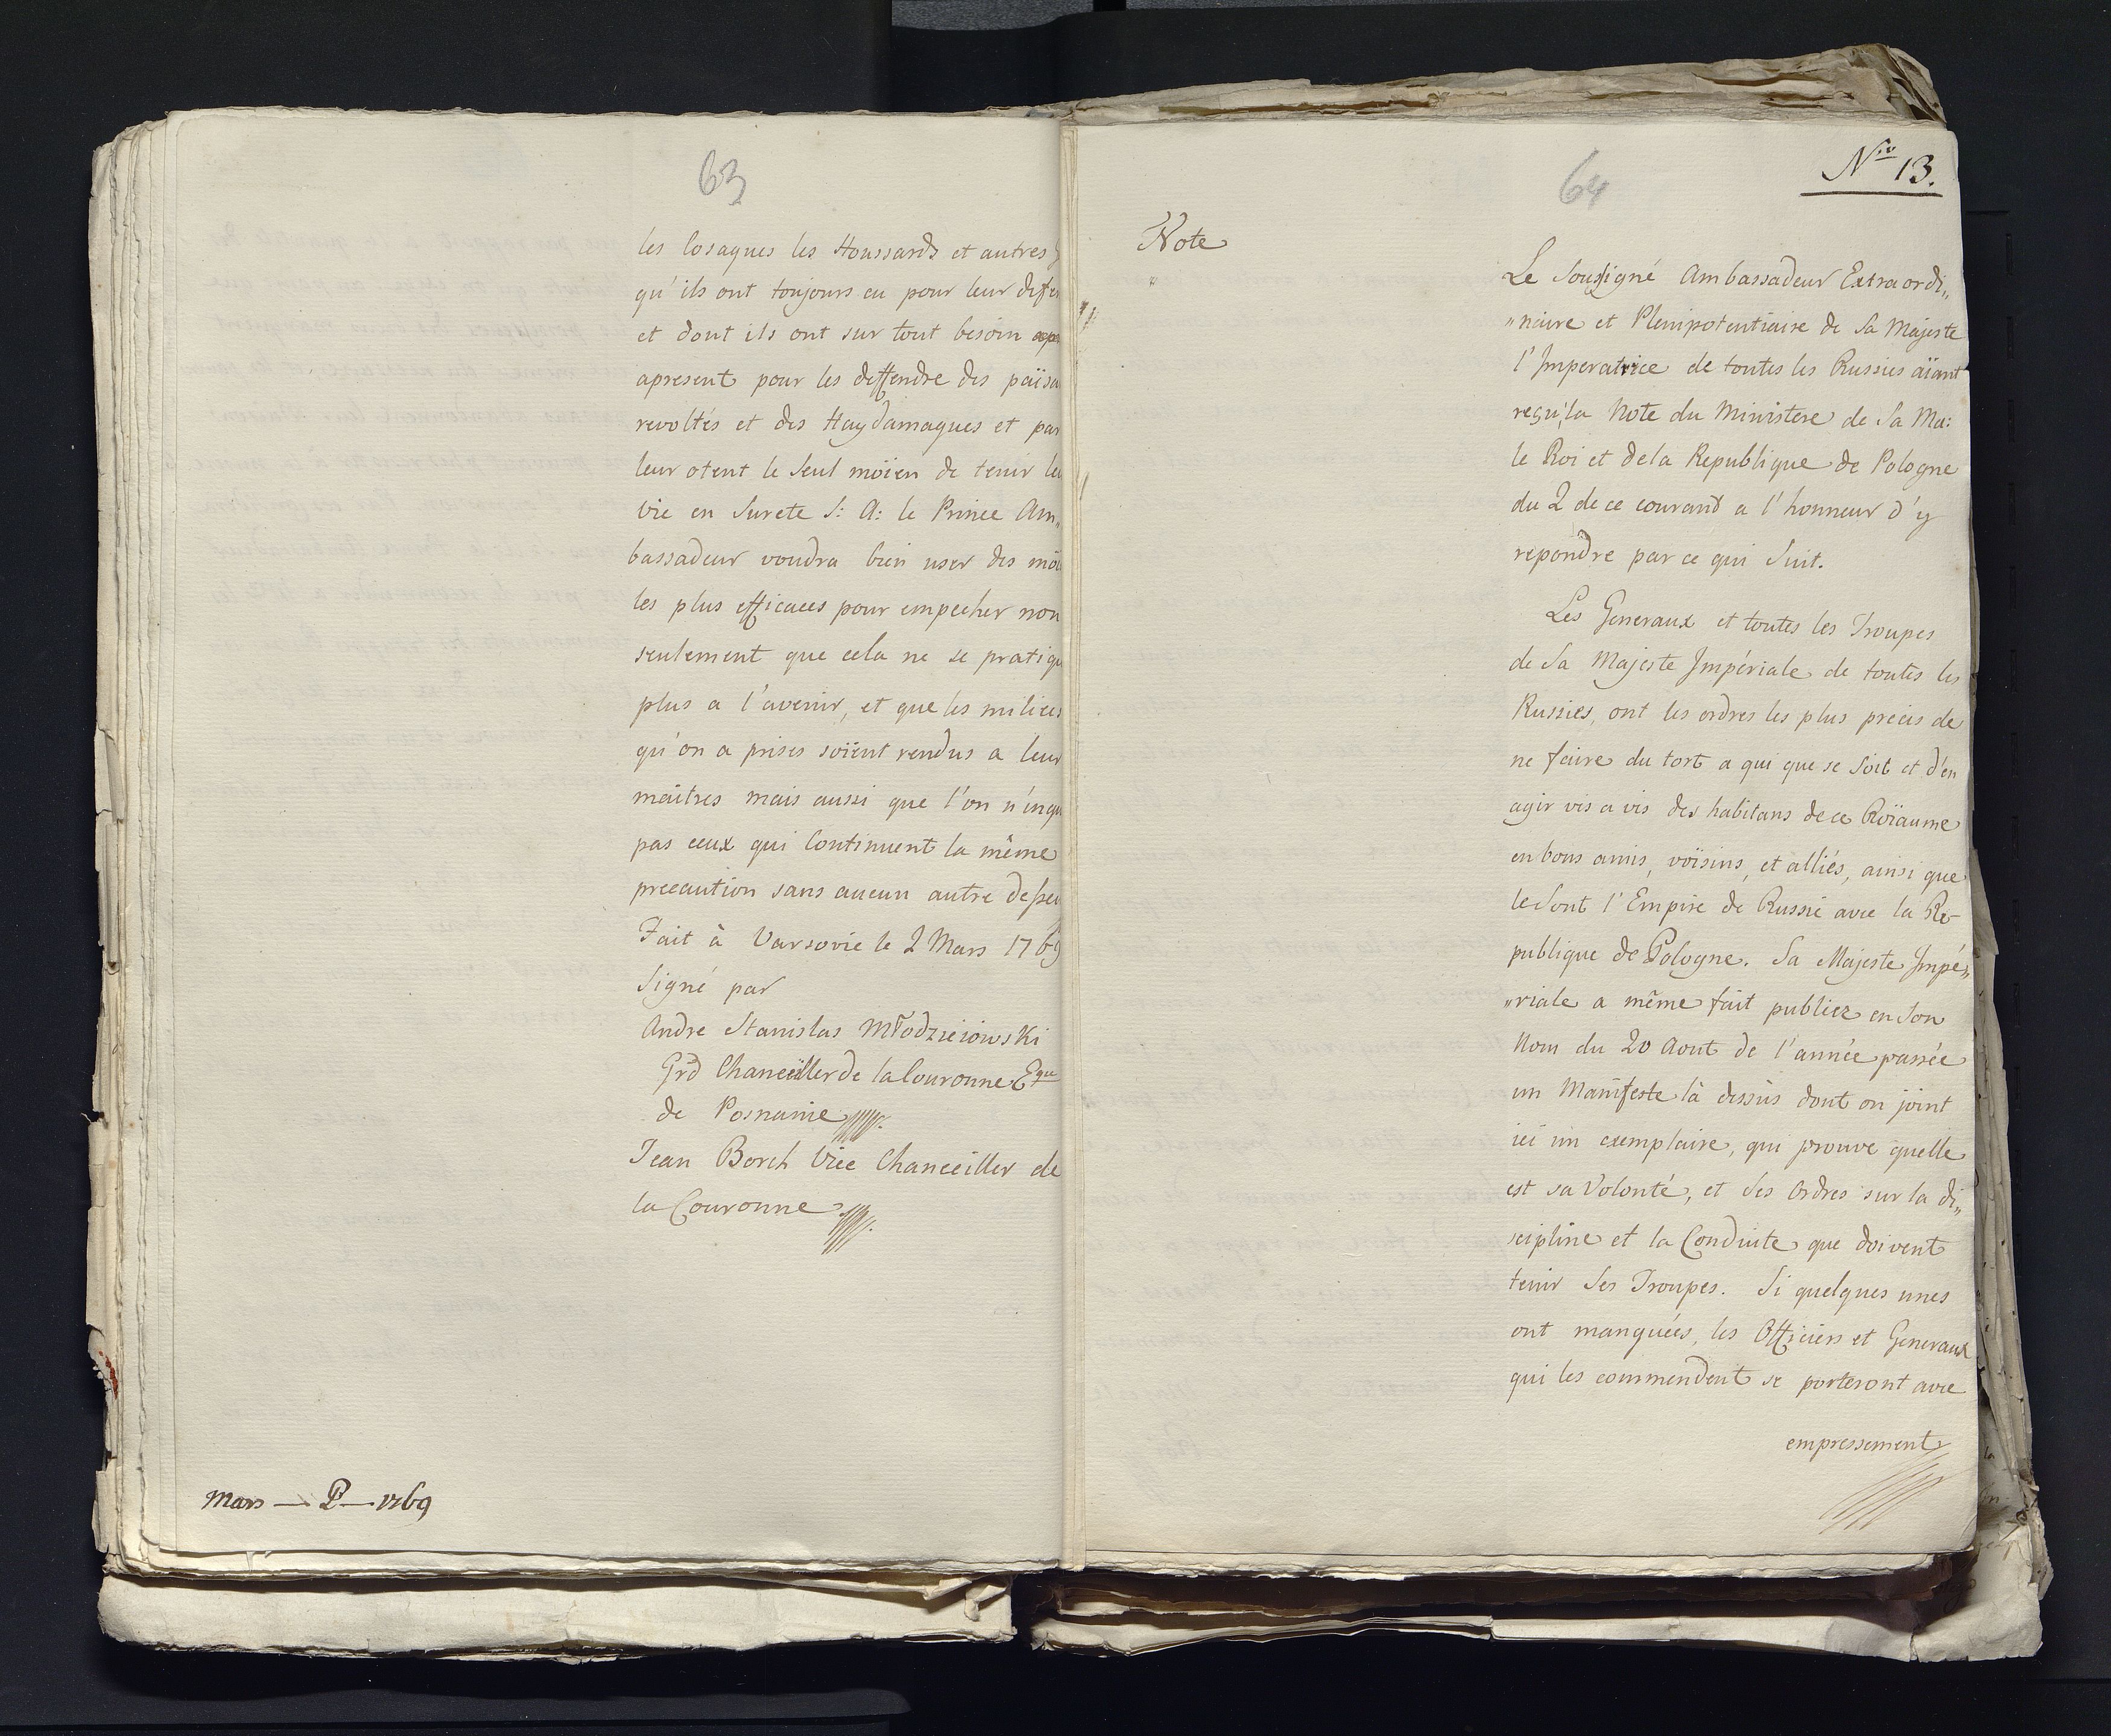 63
les Cosaques les Houssards et autres
qu'ils ont toujours eu pour leur
et dont ils ont sur tout besoin
apresent pour les deffendre des païsa
revoltés et des Haydamaques et par
leur otent le seul möien de tenir
vie en Surete S: A: le Prince Am„
bassadeur voudra bien user des
les plus efficaces pour empecher non
seulement que cela ne se pratiqu
plus a l'avenir, et que les milices
qu'on a prises soïent rendus a leur
maitres mais aussi que l'on n'inqu
pas ceux qui Continuent la même
precaution sans aucun autre
Fait à Varsovie le 2 Mars 1769
Signé par
Andre Stanislas Młodzieiowski
Grd Chanceiller de la Couronne Eque
de Posnanie
Jean Borch Vice Chanceiller de
la Couronne
Mars — 2 — 1769
64
Nro 13.
Note
Le Sousigné Ambassadeur Extraordi„
„naire et Plenipotentiaire de Sa Majeste
l'Imperatrice de toutes les Russies aïant
reçu la Note du Ministere de Sa Ma:
le Roi et de la Republique de Pologne
du 2 de ce courand a l'honneur d'y
repondre par ce qui Suit.
Les Generaux et toutes les Troupes
de Sa Majeste Impériale de toutes les
Russies, ont les ordres les plus precis de
ne faire du tort a qui que se Soit et d'en
agir vis a vis des habitans de ce Roïaume
en bons amis, voïsins, et alliés, ainsi que
le Sont l'Empire de Russie avec la Re-
publique de Pologne. Sa Majeste Impé„
„riale a même fait publier en Son
Nom du 20 Aout de l'année passée
un Manifeste là dessus dont on joint
ici un exemplaire, qui prouve quelle
est sa Volonté, et Ses Ordres sur la di„
scipline et la Conduite que doivent
tenir Ses Troupes. Si quelques unes
ont manquées, les Officiers et Generaux
qui les commendent se porteront avec
empressement